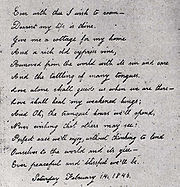 Ever with thee I wish to roam —
Dearest my life is thine.
Give me a cottage for my home
And a rich old cypress vine,
Removed from the world with its sin and care
And the tattling of many tongues.
Love alone shall guide us when we are there —
Love shall heal my weakened lungs;
And Oh, the tranquil hours we'll spend,
Never wishing that others may see!
Perfect ease we'll enjoy, without thinking to lend
Ourselves to the world and its glee —
Ever peaceful and blissful we'll be.
Saturday February 14. 1846.